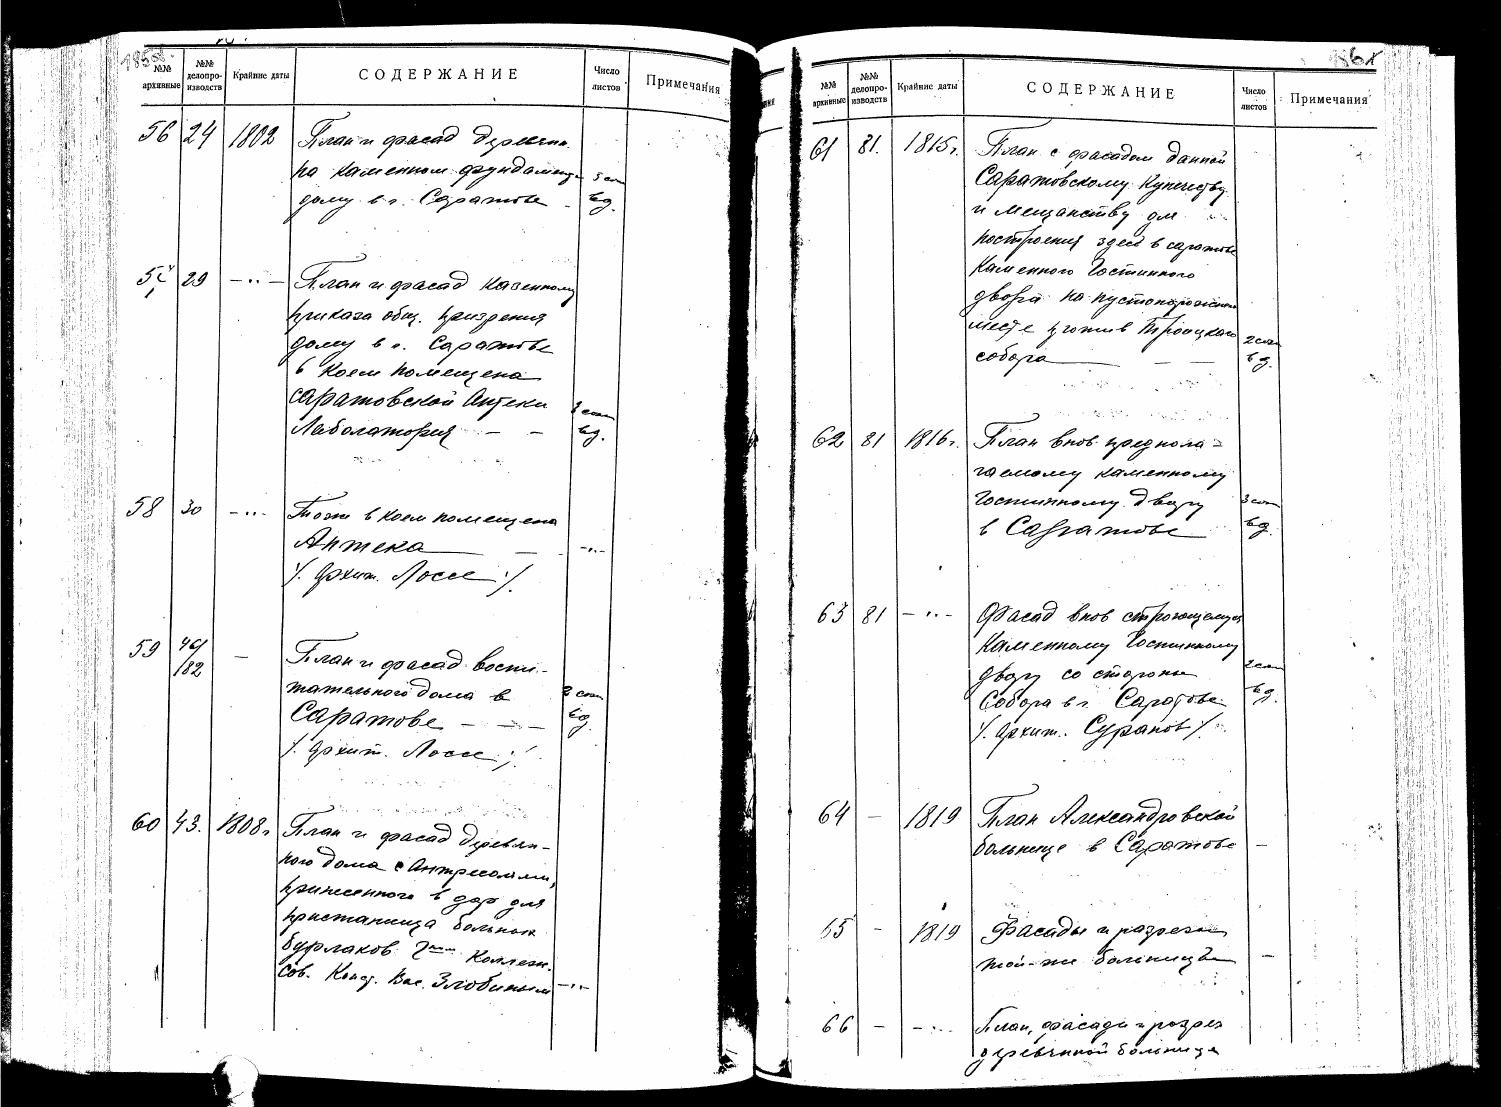 №№ архивные
№№ делопро-изводств
Крайние даты
СОДЕРЖАНИЕ
Число листов
Примечания
56 24 1802 План и фасад деревян.
на каменном фундаменте
дому в г. Саратове
в д.
29 — " — План и фасад казенному
приказа общ. призрения
дому в г. Саратове
в коем помещена
саратовской Аптеки
Лаболатория — —
в д.
58 30 — " — Тоже в коем помещена
Аптека — — " —
/. Архит. Лоссе ./
59 /82 — План и фасад воспи-
тательного дома в
Саратове — —
в д.
/. Архит. Лоссе ./
60 43. 1808 г. План и фасад деревян-
ного дома с Антресолями,
принесенного в дар для
пристанища больных
бурлаков Коллеж.
сов. Конст. Вас. Злобиным — " —
№№ архивные
№№ делопро-изводств
Крайние даты
СОДЕРЖАНИЕ
Число листов
Примечания
61 81. 1815 г. План с фасадом данной
Саратовскому Купечеству
и мещанству для
построения здесь в саратове
Каменного Гостинного
двора на пустопорожнем
месте против Троицкого
собора — —
в д.
62 81 1816 г. План внов предпола-
гаемому каменному
Гостинному двору
в Саратове
в д.
63 81 — " — Фасад внов строющемуся
Каменному Гостинному
двору со стороны
Собора в г. Саратове
в д.
/. Архит. Суранов ./
64 — 1819 План Александровской
больнице в Саратове —
65 — 1819 Фасады и разрезы
той-же больницы —
66 — — " — План, фасады и разрез
деревянной больнице